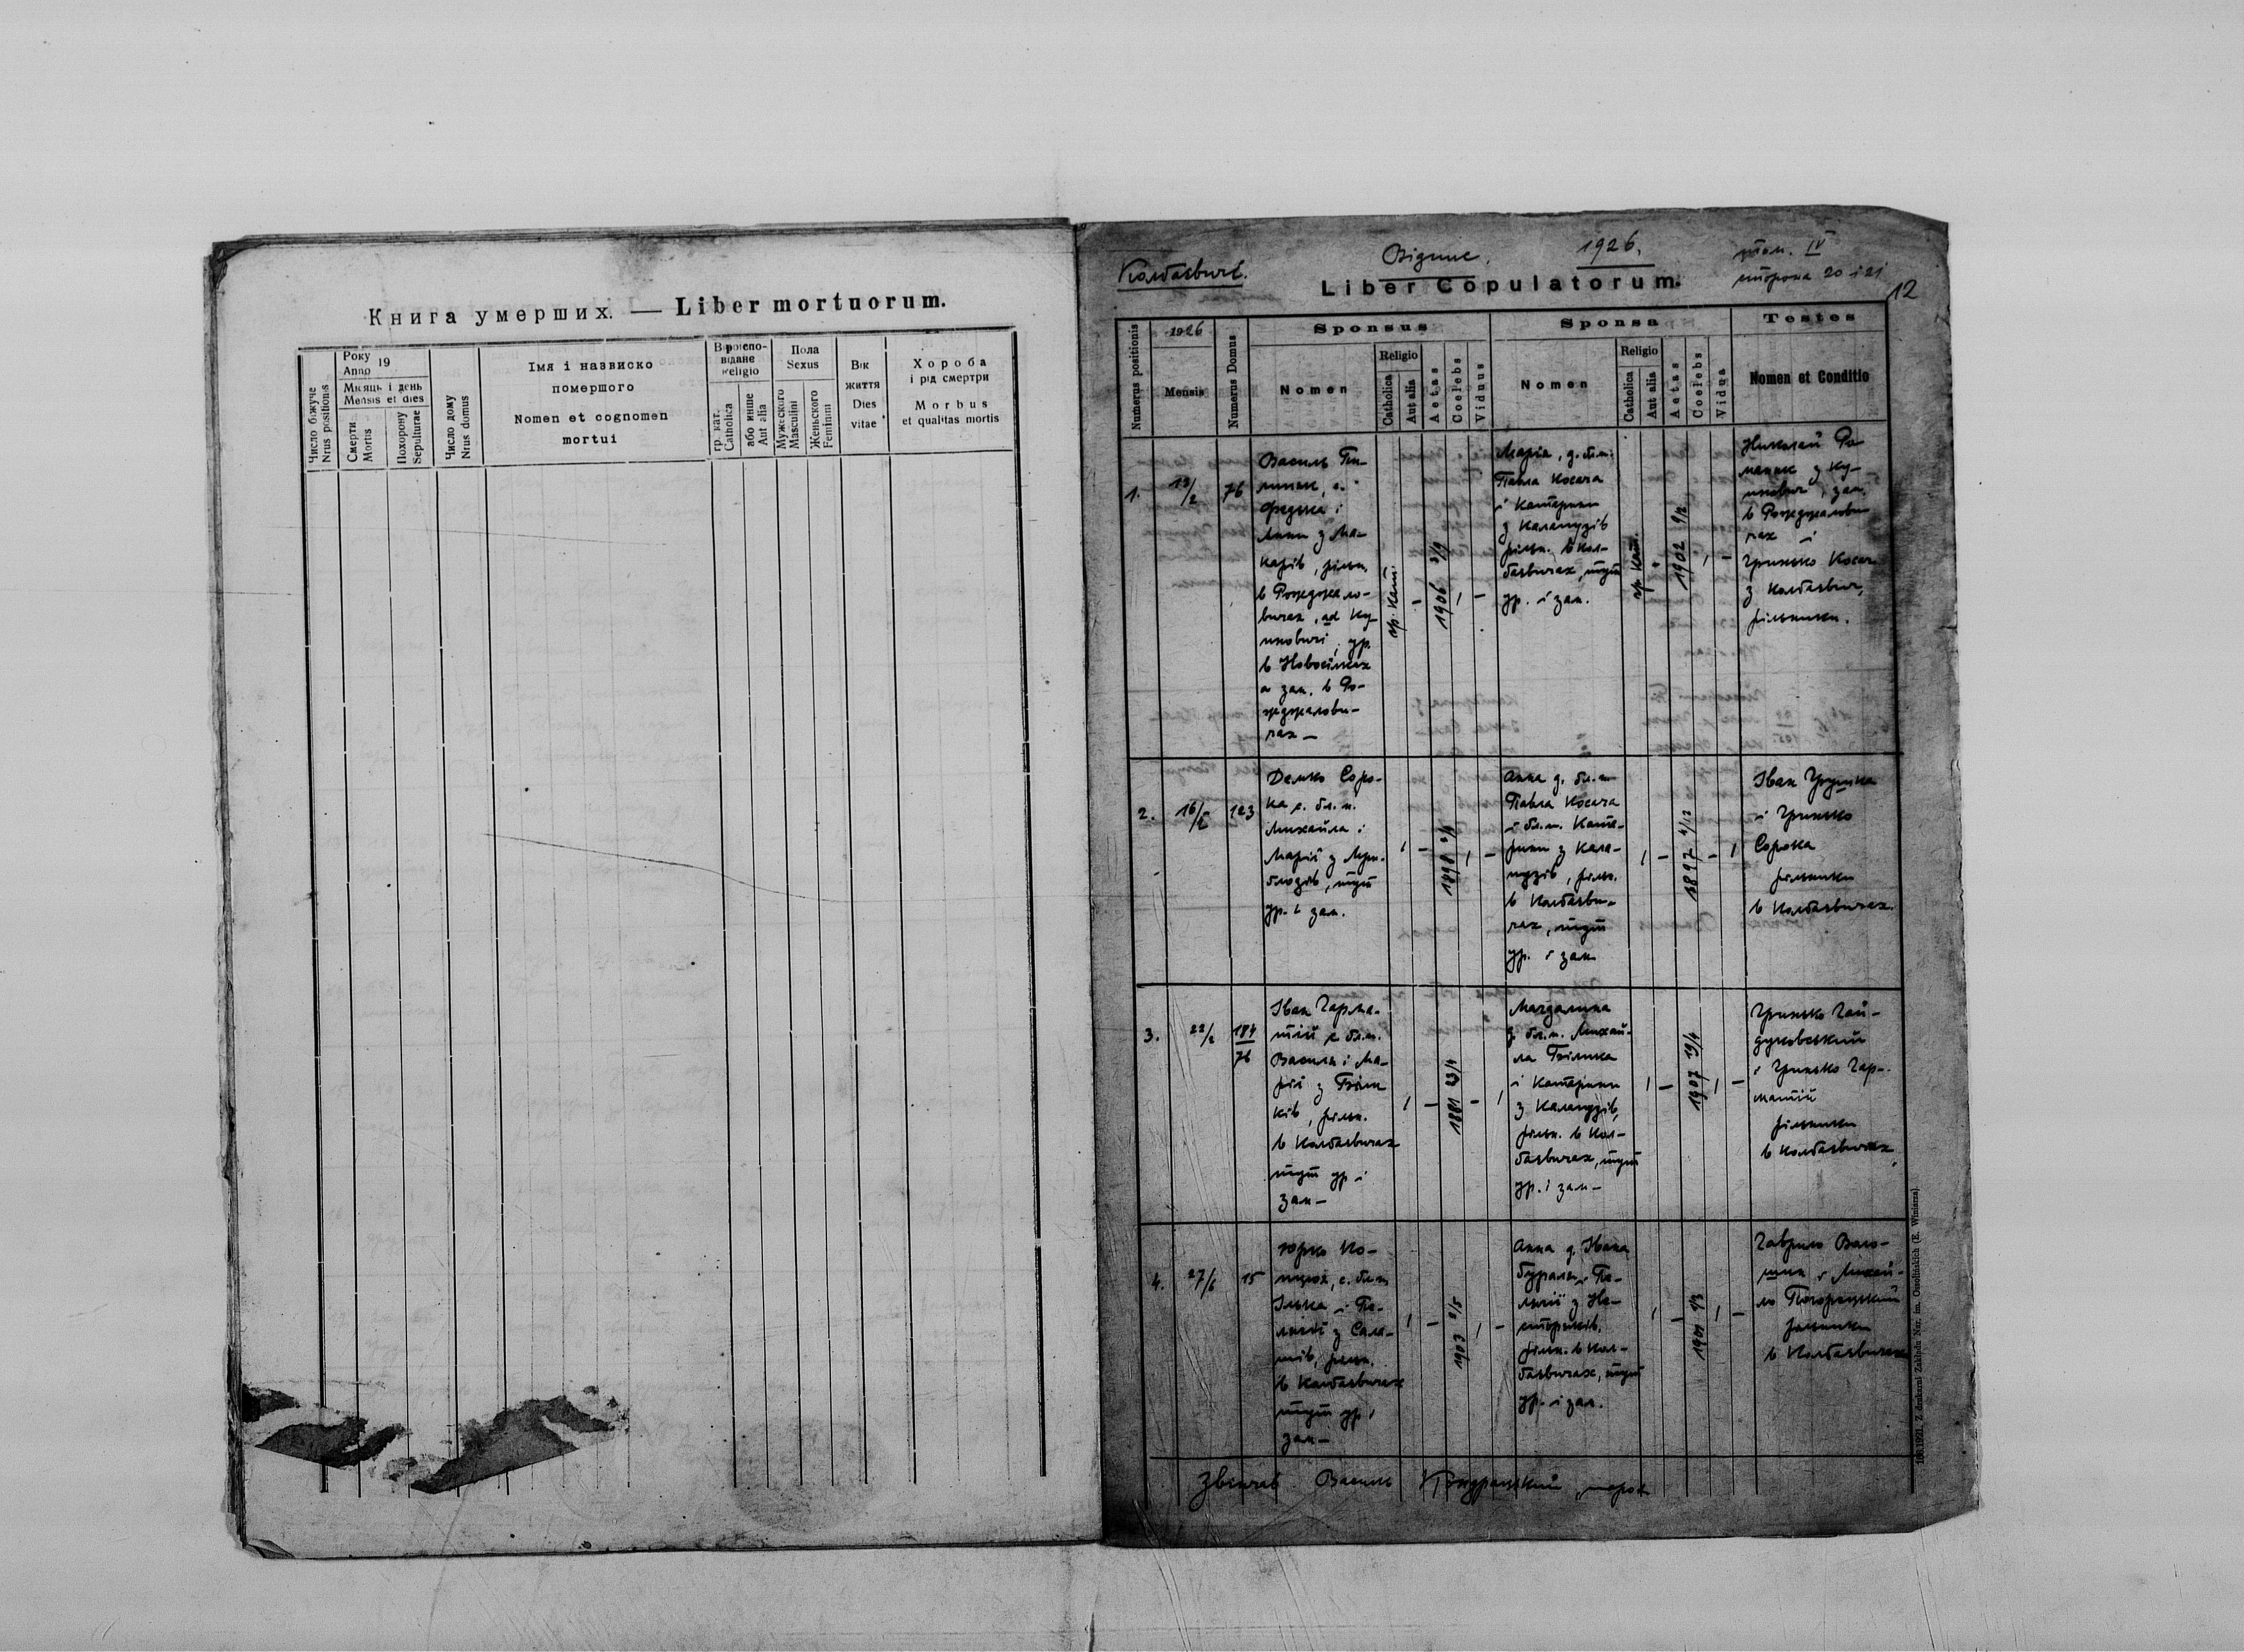 Книга умерших. — Liber mortuorum.
Число біжуче
Nrus positionis
Року 19
Anno
Місяць і день
Mensis et dies
Смерти
Mortus
Похорону
Sepulturae
Число дому
Nrus domus
Імя і назвиско
помершого
Nomen et cognomen
mortui
Віроіспо-
відане
Religio
гр. кат.
Catholica
або инше
Aut alia
Пола
Sexus
Мужеского
Masculini
Женьского
Feminini
Вік
життя
Dies
vitae
Хороба
і рід смертри
Morbus
et qualitas mortis
Колбаєвичі.
Відпис.
1926.
том. IV
сторона 20 і 21
12
Liber Copulatorum.
Numerus positionis
1926
Mensis
Numerus Domus
Sponsus
Nomen
Religio
Catholica
Aut alia
Aetas
Coelebs
Viduus
Sponsa
Nomen
Religio
Catholica
Aut alia
Aetas
Coelebs
Vidua
Testes
Nomen et Conditio
1.
13/2
76
Василь
Федька і
з Ма-
карів, рільн.
в Рожджало-
вичах, ad Ку-
ур.
в Новосілках
а зам. в Ро-
жджалови-
чах —
гр. кат.
—
1906 3/9
/
—
Марія, д. бл. п.
Павла Косача
і Катерини
з Калапуздів
рільн. в Кол-
баєвичах, тут
ур. і зам.
гр. кат.
1902 9/2
/
—
Николай Ро-
маник з Ку-
зам.
в Рожджалови-
чах і
Гринько Косач
з Колбаєвич,
рільники.
2.
16/2
123
Демко Соро-
ка с. бл. п.
Михайла і
Марії з
тут
ур. і зам.
/
—
1898
/
—
Анна д. бл. п.
Павла Косача
і бл. п. Кате-
рини з Кала-
пуздів, рільн.
в Колбаєви-
чах, тут
ур. і зам
/
—
1897 4/12
—
/
Іван Грушка
і Гринько
Сорока
рільники
в Колбаєвичах.
3.
22/2
184
76
Іван Гарма-
тій с. бл. п.
Василя і Ма-
рії з Біль-
ків, рільн.
в Колбаєвичах
тут ур і
зам —
/
—
1881 23/4
—
/
Магдалина
д. бл. п. Михай-
ла Білика
і Катерини
з Калапуздів,
рільн. в Кол-
баєвичах, тут
ур. і зам —
/
—
1907 19/4
/
—
Гринько Гай-
дуковський
і Гринько Гар-
матій
рільники
в Колбаєвичах
4.
27/6
15
Юрко Ко-
с. бл. п.
Ілька і Пе-
лагії з Сала-
рільн.
в Колбаєвичах
тут ур і
зам —
/
—
1903 2/5
/
—
Анна д. Івана
і Пе-
лагії з Не-
рільн. в Кол-
баєвичах, тут
ур. і зам.
/
—
1901 9/3
/
—
Гаврило Воло-
шин і Михай-
ло
рільники
в Колбаєвичах
Звінчав Василь парох
106.1921. Z drukarni Zakładu Nar. im. Ossolińskich (E. Winiarza).